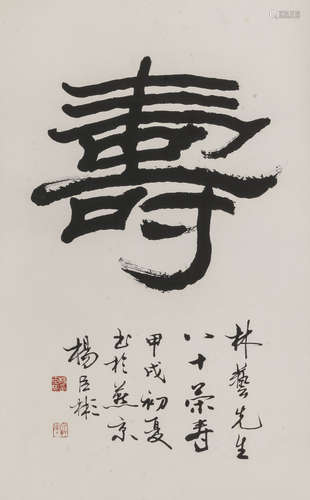 壽
林藝先生
八十榮壽
甲戌初夏
書於燕京
楊臣彬